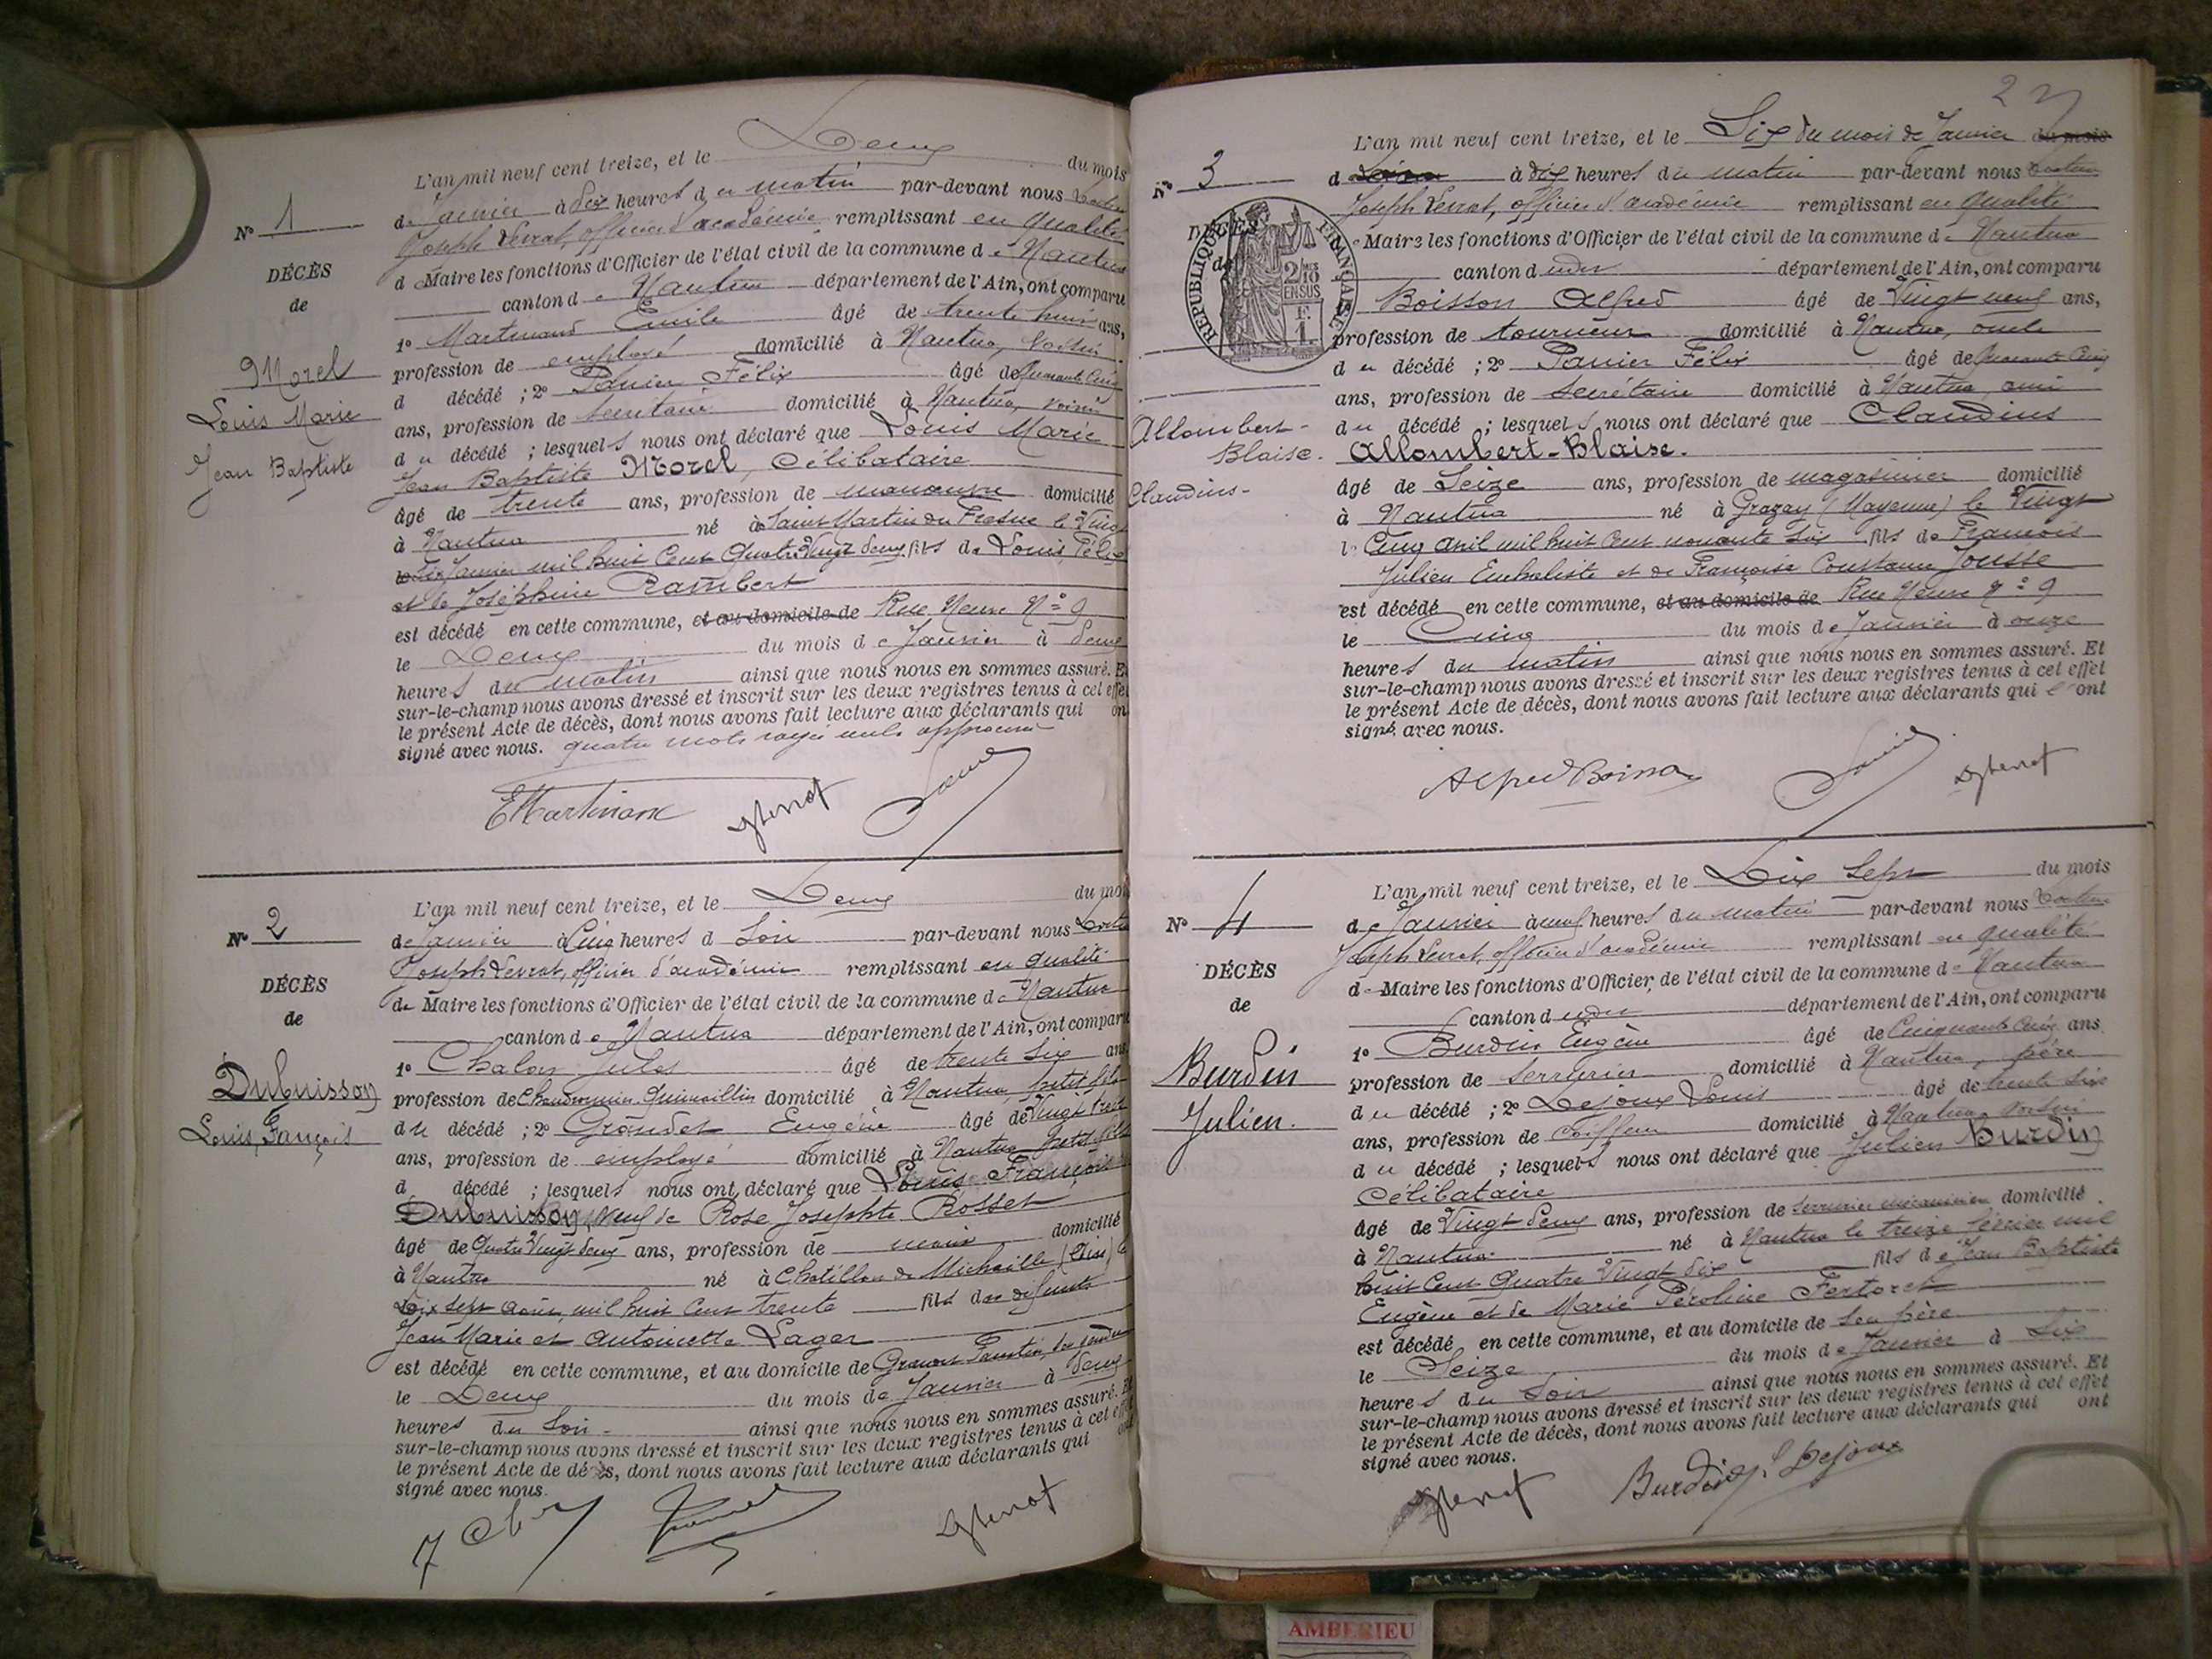 L'an mil neuf cent treize, et le Deux du mois
de Janvier à dix heures du matin par-devant nous Docteur
Joseph Levrat, officier d'académie remplissant en qualité
de Maire les fonctions d'Officier de l'état civil de la commune de Nantua
canton de Nantua département de l'Ain, ont comparu
1° Martinand Emile âgé de trente huit ans,
profession de employé domicilié à Nantua, voisin
d décédé ; 2° Panier Félix âgé de quarante cinq
ans, profession de secrétaire domicilié à Nantua, voisin
du décédé ; lesquels nous ont déclaré que Louis Marie
Jean Baptiste Morel, Célibataire
âgé de trente ans, profession de manœuvre domicilié
à Nantua né à Saint Martin du Fresne le Vingt
Janvier mil huit Cent Quatre Vingt deux fils de Louis Félix
et de Joséphine Rambert
est décédé en cette commune, et au domicile de Rue Neuve N° 9
le Deux du mois de Janvier à deux
heures du matin ainsi que nous nous en sommes assuré. Et
sur-le-champ nous avons dressé et inscrit sur les deux registres tenus à cet effet
le présent Acte de décès, dont nous avons fait lecture aux déclarants qui ont
signé avec nous. quatre mots rayés nuls approuvé
N° 1
DÉCÈS
de
Morel
Louis Marie
Jean Baptiste
EMartinand
JLevrat
L'an mil neuf cent treize, et le Deux du mois
de Janvier à Cinq heures d Soir par-devant nous Docteur
Joseph Levrat, officier d'académie remplissant en qualité
de Maire les fonctions d'Officier de l'état civil de la commune de Nantua
canton de Nantua département de l'Ain, ont comparu
1° Chalon Jules âgé de trente six ans
profession de Quincaillier domicilié à Nantua petit fils
du décédé ; 2° Grandet Eugène âgé de Vingt
ans, profession de employé domicilié à Nantua petit fils
d décédé ; lesquels nous ont déclaré que Louis François
Dubuisson, veuf de Rose Josephte Rosset
âgé de Quatre Vingt deux ans, profession de domicilié
à Nantua né à Chatillon de Michaille (Ain) le
Dix sept août mil huit Cent trente fils de défunts
Jean Marie et Antoinette Lager
est décédé en cette commune, et au domicile de
le Deux du mois de Janvier à deux
heures du Soir ainsi que nous nous en sommes assuré. Et
sur-le-champ nous avons dressé et inscrit sur les deux registres tenus à cet effet
le présent Acte de décès, dont nous avons fait lecture aux déclarants qui ont
signé avec nous.
N° 2
DÉCÈS
de
Dubuisson
Louis, François
JLevrat
27
L'an mil neuf cent treize, et le Six du mois de Janvier du mois
d à dix heures du matin par-devant nous Docteur
Joseph Levrat, officier d'académie remplissant en qualité
de Maire les fonctions d'Officier de l'état civil de la commune de Nantua
canton d département de l'Ain, ont comparu
Boisson Alfred âgé de Vingt neuf ans,
profession de tourneur domicilié à Nantua, oncle
du décédé ; 2° Panier Félix âgé de Quarante Cinq
ans, profession de secrétaire domicilié à Nantua, ami
du décédé ; lesquels nous ont déclaré que Claudius
Allombert-Blaise.
âgé de Seize ans, profession de magasinier domicilié
à Nantua né à Grazay (Mayenne) le Vingt
Cinq avril mil huit Cent nonante Six fils de François
Julien et de Françoise Constance Jousse
est décédé en cette commune, et au domicile de Rue Neuve N° 9
le Cinq du mois de Janvier à onze
heures du matin ainsi que nous nous en sommes assuré. Et
sur-le-champ nous avons dressé et inscrit sur les deux registres tenus à cet effet
le présent Acte de décès, dont nous avons fait lecture aux déclarants qui ont
signé avec nous.
N° 3
DÉCÈS
de
RÉPUBLIQUE FRANÇAISE
2/10 EN SUS
F. 1.
Allombert-
Blaise.
Claudius-
Alfred Boisson
JLevrat
L'an mil neuf cent treize, et le Dix Sept du mois
de Janvier à neuf heures du matin par-devant nous Docteur
Joseph Levrat, officier d'académie remplissant en qualité
de Maire les fonctions d'Officier de l'état civil de la commune de Nantua
canton d département de l'Ain, ont comparu
1° Burdin Eugène âgé de Cinquante Cinq ans
profession de Serrurier domicilié à Nantua, père
du décédé ; 2° Dejoux Louis âgé de trente Six
ans, profession de Coiffeur domicilié à Nantua voisin
du décédé ; lesquels nous ont déclaré que Julien Burdin
Célibataire
âgé de Vingt deux ans, profession de Serrurier mécanicien domicilié
à Nantua né à Nantua le treize février mil
huit Cent Quatre Vingt dix fils de Jean Baptiste
Eugène et de Marie Péroline Fertoret
est décédé en cette commune, et au domicile de Son père
le Seize du mois de Janvier à Six
heures du Soir ainsi que nous nous en sommes assuré. Et
sur-le-champ nous avons dressé et inscrit sur les deux registres tenus à cet effet
le présent Acte de décès, dont nous avons fait lecture aux déclarants qui ont
signé avec nous.
N° 4
DÉCÈS
de
Burdin
Julien.
JLevrat
Burdin
L Dejoux
AMBERIEU